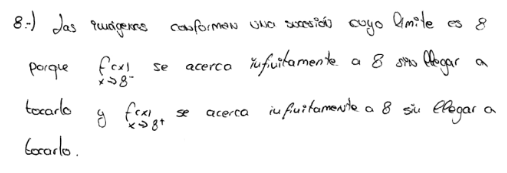 8.-) Las imágenes conforman una sucesión cuyo límite es 8
porque f(x) x→8⁻ se acerca infinitamente a 8 sin llegar a
tocarlo y f(x) x→8⁺ se acerca infinitamente a 8 sin llegar a
tocarlo.